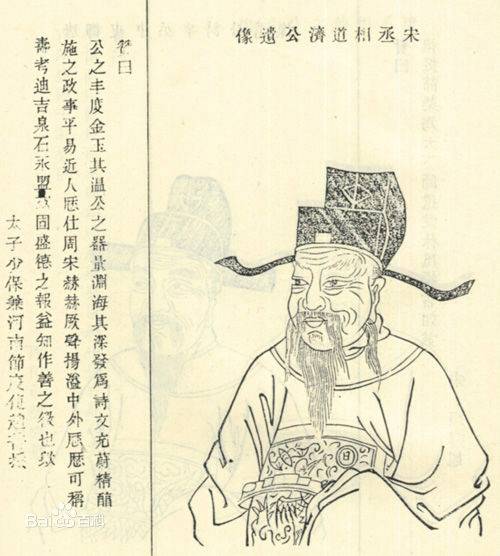 宋丞相道濟公遺像
曰
公之丰度金玉其溫公之器量淵海其深發爲詩文充蔚精醇
施之政事平易近人歷仕周宋赫赫厥聲揚溢中外歷歷可稱
壽考迪吉泉石永盟固盛德之報益知作善之徵也歟
太子少保兼河南節度使趙普撰
Baidu百科